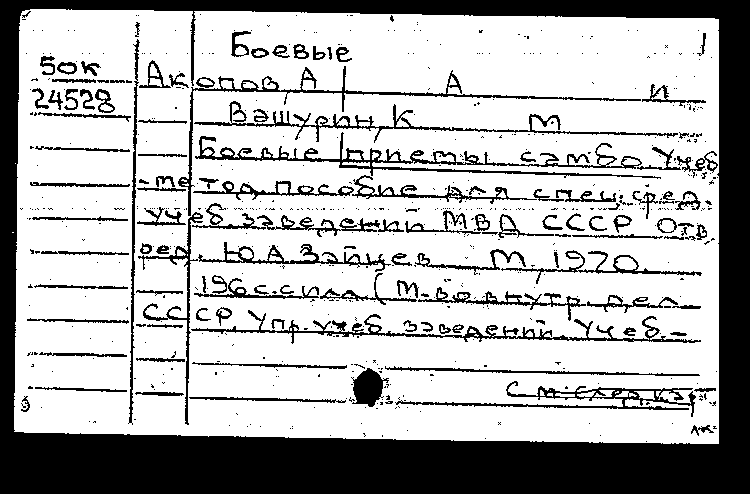 Боевые 1
50к Акопов, А А И
24528 Вашурин, К М
Боевые приемы самбо. Учеб
-метод. пособие для спец. сред.
учеб. заведений МВД СССР Отв.
ред. Ю.А. Зайцев М., 1970.
196 с. с илл (М-во внутр. дел
СССР. Упр. учеб. заведений. Учеб.-
См. след. кар